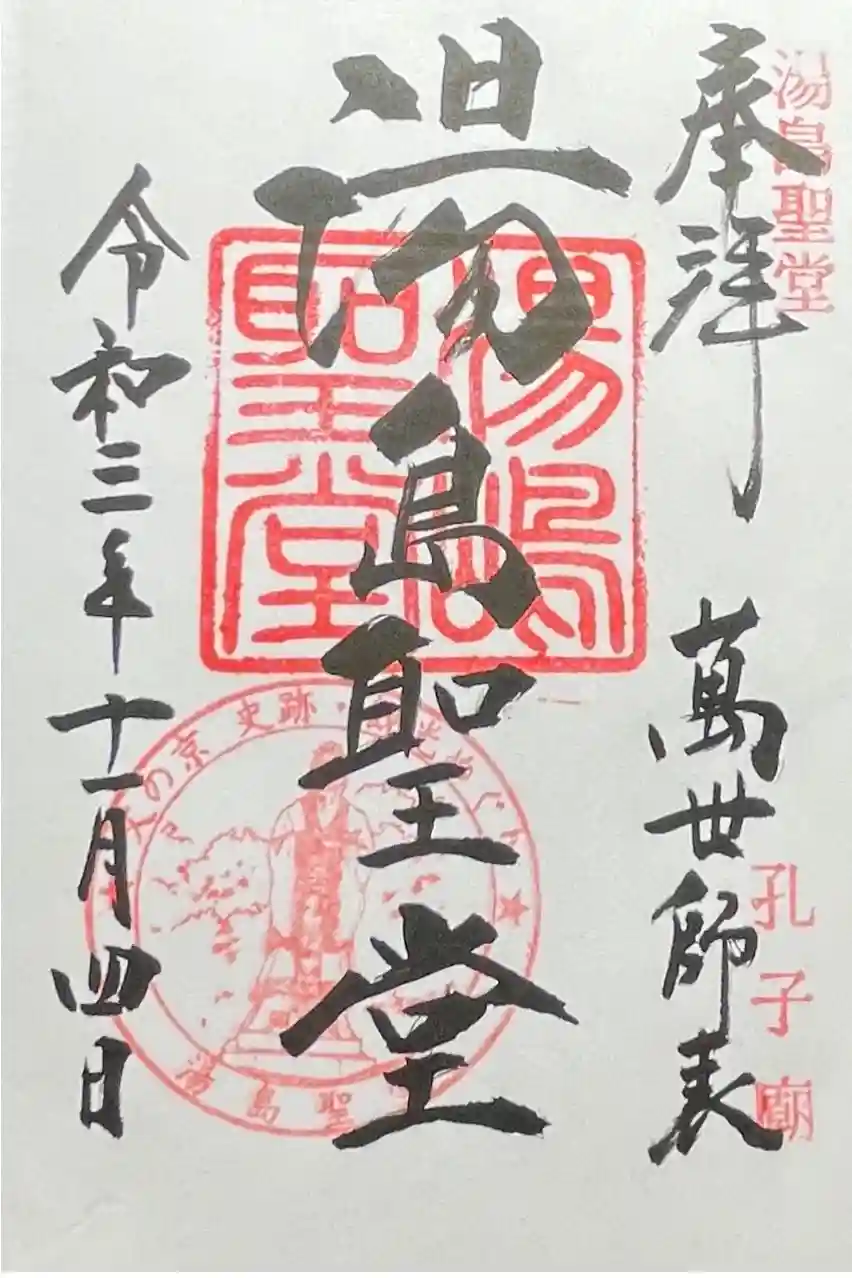 湯島聖堂
孔子廟
奉拝
萬世師表
湯島聖堂
湯嶋聖堂
文の京 史跡・観光めぐり
湯島聖堂
令和三年十一月四日